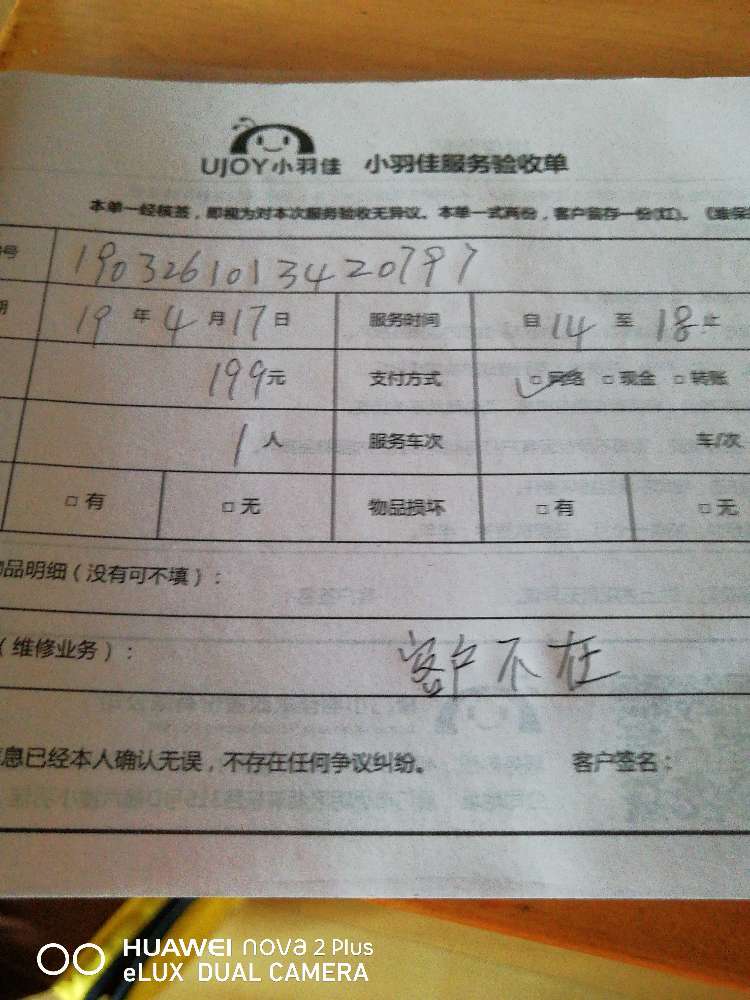 UJOY小羽佳 小羽佳服务验收单
本单一经核签，即视为对本次服务验收无异议。本单一式两份，客户留存一份(红)。《维保
号 1903261013420797
期 19年4月17日 服务时间 自14至18止
199元 支付方式 □网络 □现金 □转账
1人 服务车次 车/次
□有 □无 物品损坏 □有 □无
品明细（没有可不填）：
（维修业务）： 客户不在
息已经本人确认无误，不存在任何争议纠纷。 客户签名：
HUAWEI nova 2 Plus
eLUX DUAL CAMERA